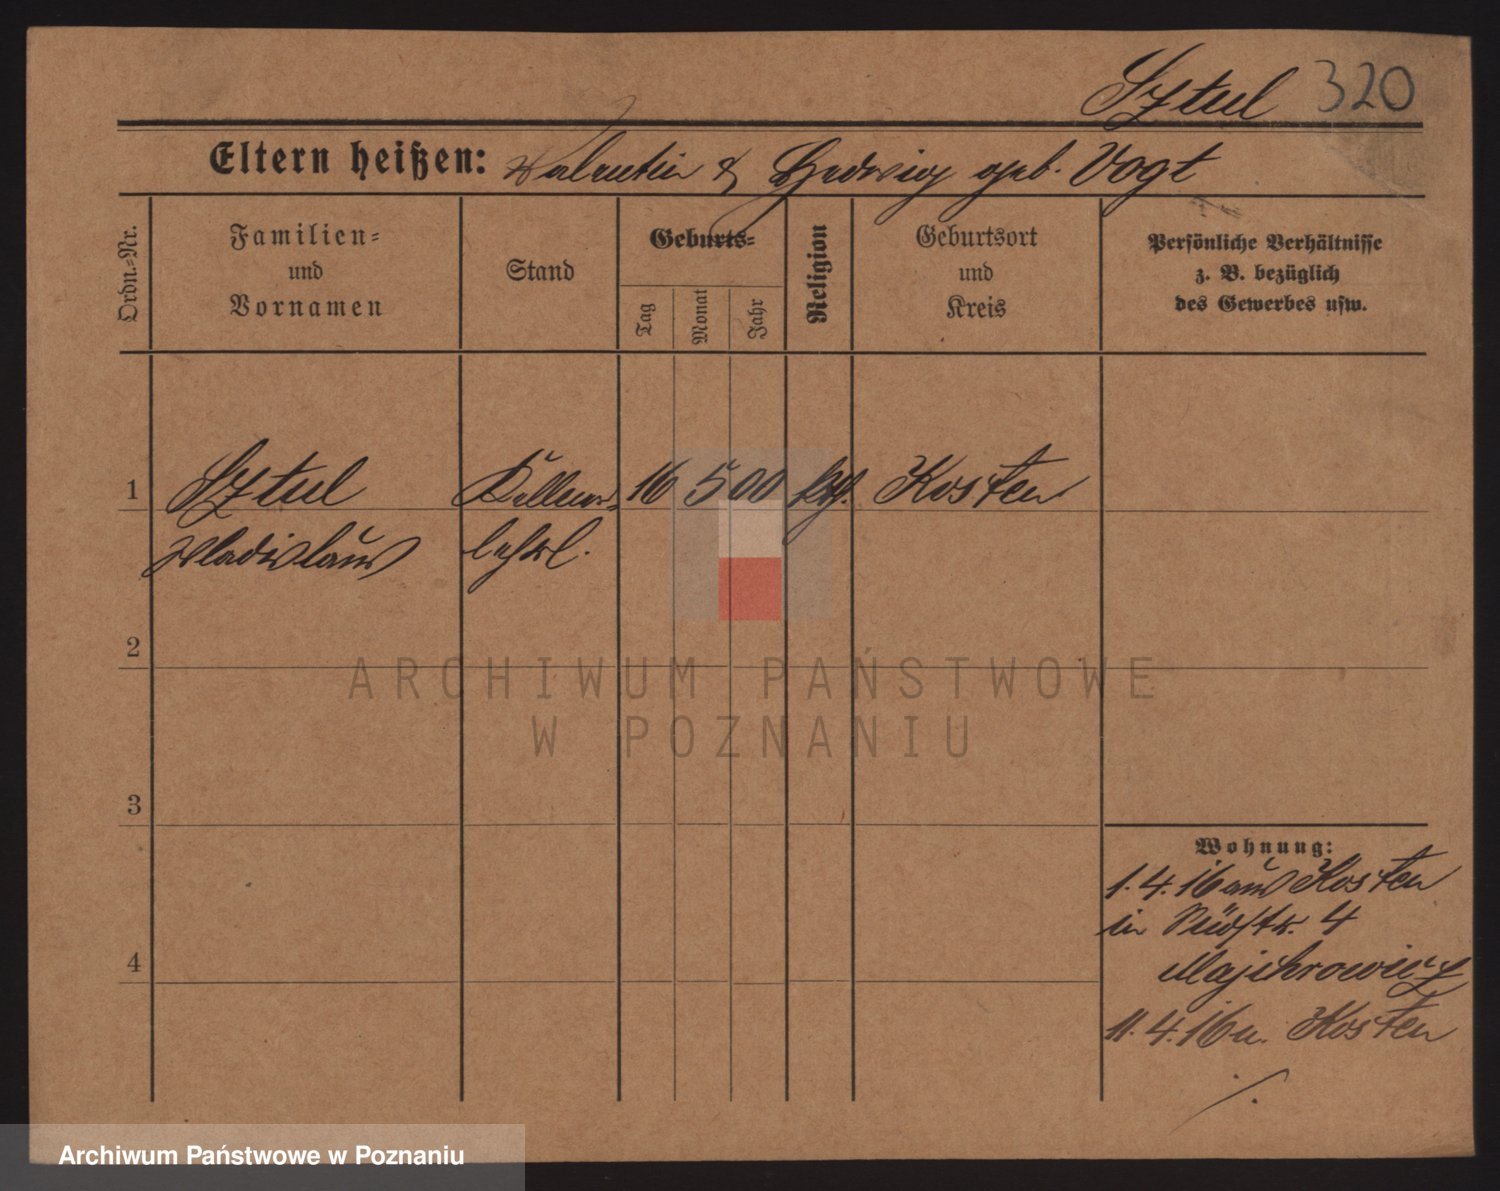 Sztul 320
Eltern heißen: Valentin & Hedwig geb. Vogt
Ordn.-Nr.
Familien-
und
Vornamen
Stand
Geburts-
Tag
Monat
Jahr
Religion
Geburtsort
und
Kreis
Persönliche Verhältnisse
z. B. bezüglich
des Gewerbes usw.
1 Sztul Kellner- 16 5 00 kth. Kosten
Wladislaus lehrl.
2
3
4
Wohnung:
1.4.16 aus Kosten
in 4
Majchrowicz
11.4.16 n. Kosten
ARCHIWUM PAŃSTWOWE
W POZNANIU
Archiwum Państwowe w Poznaniu